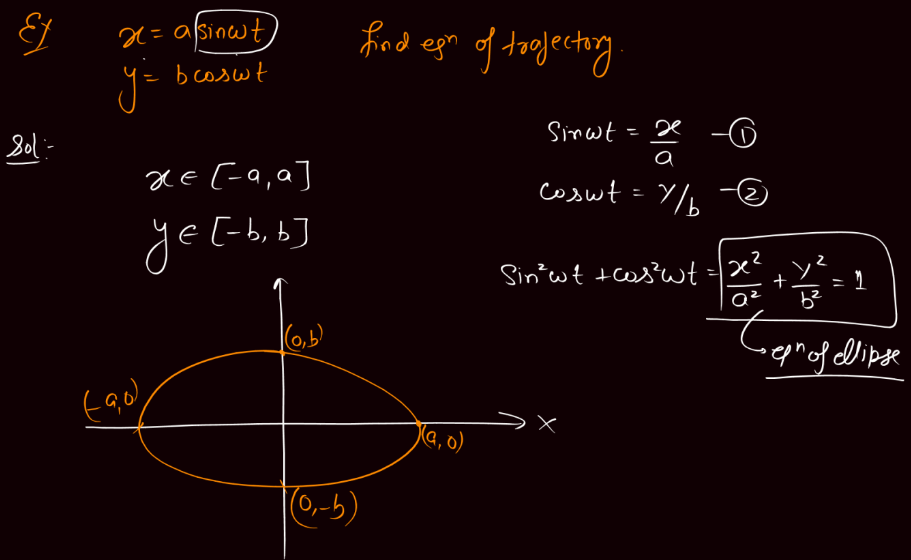 Ex x = a sinωt find eqⁿ of trajectory.
y = b cosωt
Sol:-
x ∈ [-a, a]
y ∈ [-b, b]
Sinωt = x/a —①
cosωt = y/b —②
Sin²ωt + cos²ωt = x²/a² + y²/b² = 1
eqⁿ of ellipse
(0,b)
(-a,0)
X
(a,0)
(0,-b)